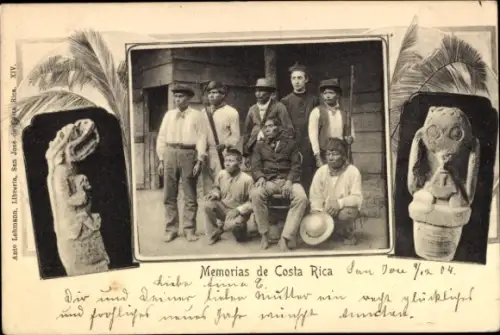 Ant⁰ Lehmann, Librería, San José de Costa Rica, XIV.
Memorias de Costa Rica
San José 04.
Liebe Anna
Dir und Deiner lieben Mutter ein recht glückliches
und fröhliches neues Jahr wünscht